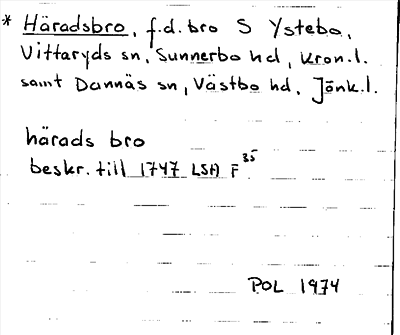 * Häradsbro, f.d. bro S Ystebo,
Vittaryds sn, Sunnerbo hd, Kron.l.
samt Dannäs sn, Västbo hd, Jönk.l.
härads bro
beskr. till 1747 LSA F 35
POL 1974